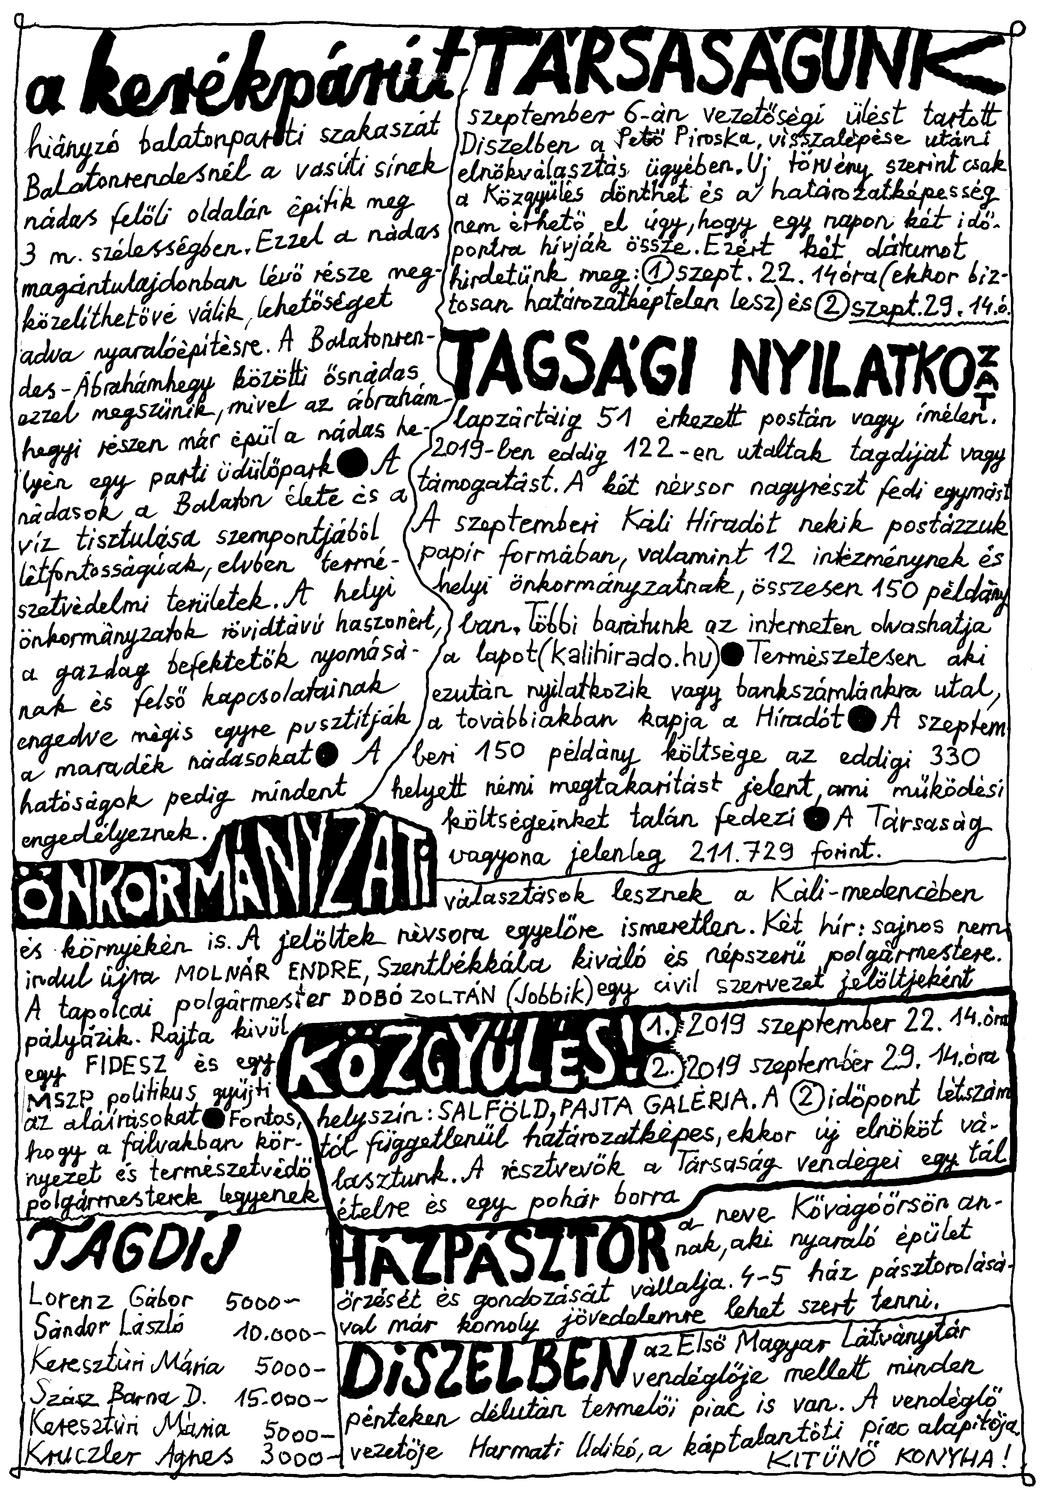 a kerékpárút
hiányzó balatonparti szakaszát
Balatonrendesnél a vasúti sínek
nádas felőli oldalán építik meg
3 m. szélességben. Ezzel a nádas
magántulajdonban lévő része meg-
közelíthetővé válik, lehetőséget
adva nyaralóépítésre. A Balatonren-
des-Ábrahámhegy közötti ősnádas
ezzel megszűnik, mivel az ábrahám-
hegyi részen már épül a nádas he-
lyén egy parti üdülőpark ● A
nádasok a Balaton élete és a
víz tisztulása szempontjából
létfontosságúak, elvben termé-
szetvédelmi területek. A helyi
önkormányzatok rövidtávú haszonért,
a gazdag befektetők nyomásá-
nak és felső kapcsolatainak
engedve mégis egyre pusztítják
a maradék nádasokat ● A
hatóságok pedig mindent
engedélyeznek.
TÁRSASÁGUNK
szeptember 6-án vezetőségi ülést tartott
Diszelben a Pető Piroska, visszalépése utáni
elnökválasztás ügyében. Uj törvény szerint csak
a Közgyűlés dönthet és a határozatképesség
nem érhető el úgy, hogy egy napon két idő-
pontra hívják össze. Ezért két dátumot
hirdetünk meg: ① szept. 22. 14 óra (ekkor biz-
tosan határozatképtelen lesz) és ② szept. 29. 14.ó.
TAGSÁGI NYILATKOZAT
lapzártáig 51 érkezett postán vagy ímélen.
2019-ben eddig 122-en utaltak tagdíjat vagy
támogatást. A két névsor nagyrészt fedi egymást
A szeptemberi Káli Híradót nekik postázzuk
papír formában, valamint 12 intézménynek és
helyi önkormányzatnak, összesen 150 példány
ban. Többi barátunk az interneten olvashatja
a lapot (kalihirado.hu) ● Természetesen aki
ezután nyilatkozik vagy bankszámlánkra utal,
a továbbiakban kapja a Híradót ● A szeptem
beri 150 példány költsége az eddigi 330
helyett némi megtakarítást jelent, ami működési
költségeinket talán fedezi ● A Társaság
vagyona jelenleg 211.729 forint.
ÖNKORMÁNYZATI
választások lesznek a Káli-medencében
és környékén is. A jelöltek névsora egyelőre ismeretlen. Két hír: sajnos nem
indul újra MOLNÁR ENDRE, Szentbékkálla kiváló és népszerű polgármestere.
A tapolcai polgármester DOBÓ ZOLTÁN (Jobbik) egy civil szervezet jelöltjeként
pályázik. Rajta kívül
egy FIDESZ és egy
MSZP politikus gyűjti
az aláírásokat ● Fontos,
hogy a falvakban kör-
nyezet és természetvédő
polgármesterek legyenek
KÖZGYŰLÉS!
1. 2019 szeptember 22. 14. óra
2. 2019 szeptember 29. 14. óra
helyszín: SALFÖLD, PAJTA GALÉRIA. A ② időpont létszám
tól függetlenül határozatképes, ekkor új elnököt vá-
lasztunk. A résztvevők a Társaság vendégei egy tál
ételre és egy pohár borra
TAGDÍJ
Lorenz Gábor 5000-
Sándor László 10.000-
Keresztúri Mária 5000-
Szász Barna D. 15.000-
Keresztúri Mária 5000-
Kruczler Ágnes 3000-
HÁZPÁSZTOR
a neve Kővágóőrsön an-
nak, aki nyaraló épület
őrzését és gondozását vállalja. 4-5 ház pásztorolásá-
val már komoly jövedelemre lehet szert tenni.
DISZELBEN
az Első Magyar Látványtár
vendéglője mellett minden
pénteken délután termelői piac is van. A vendéglő
vezetője Harmati Ildikó, a káptalantóti piac alapítója
KITŰNŐ KONYHA!